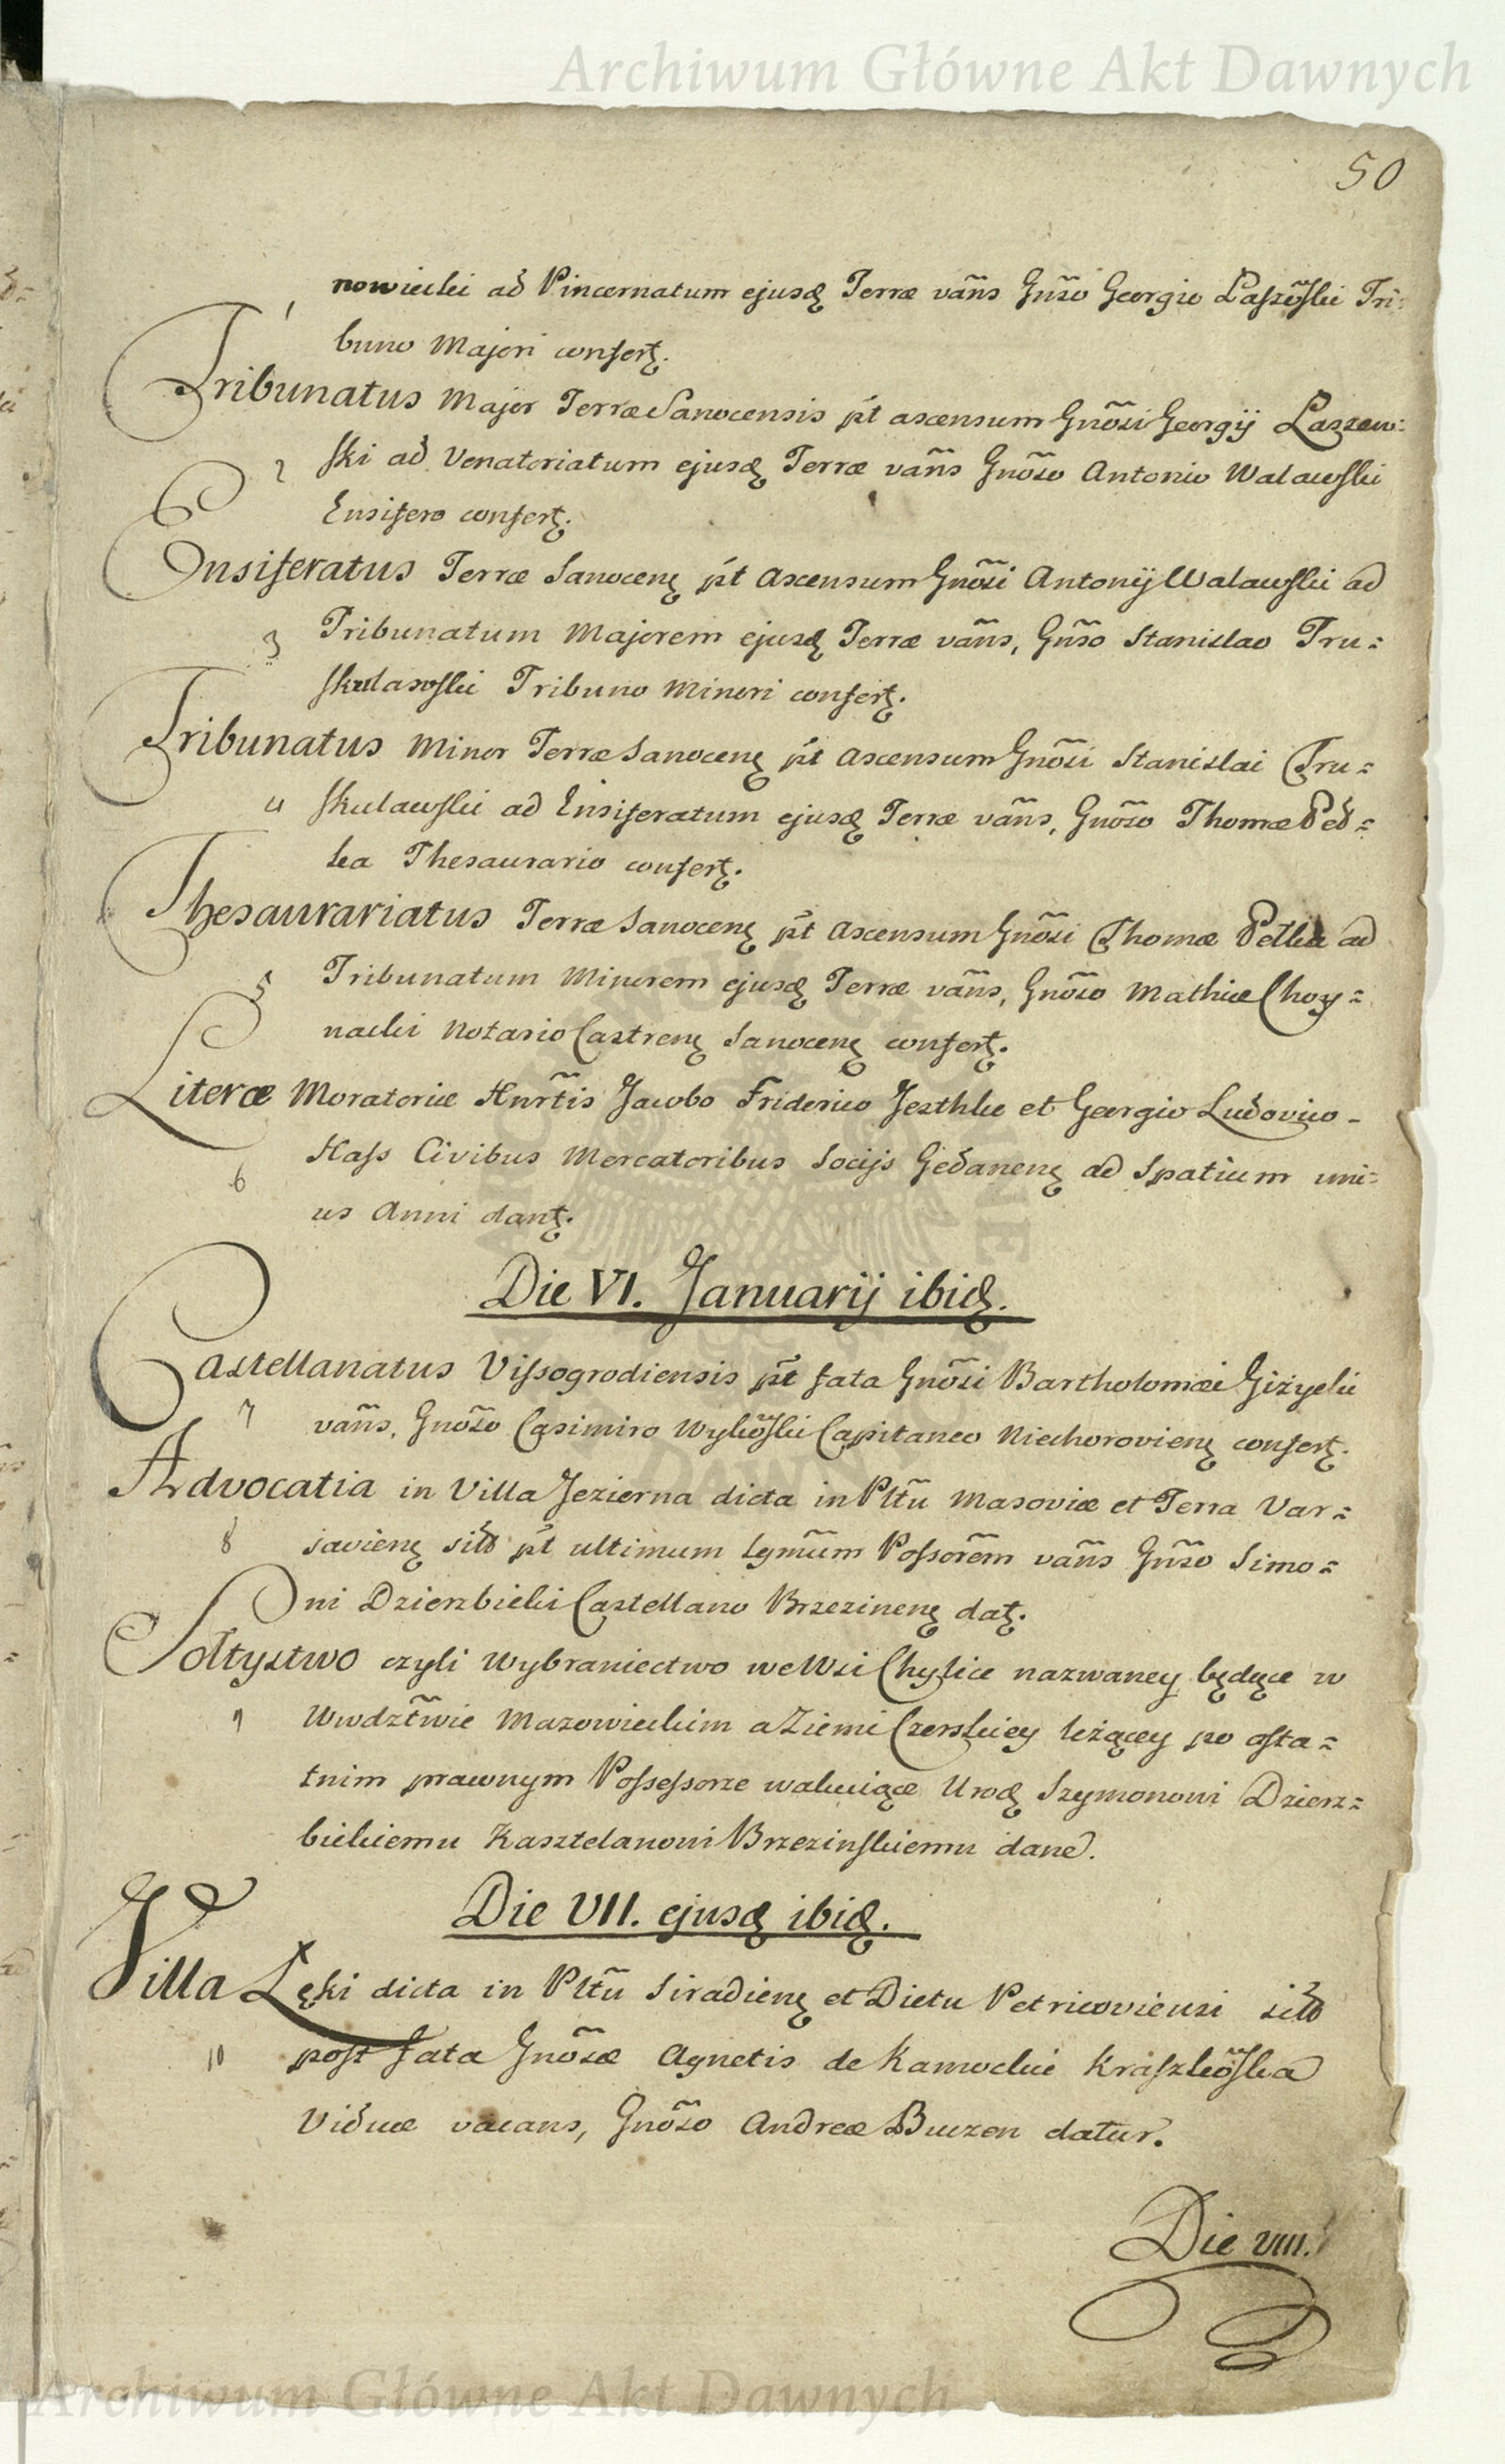 Archiwum Główne Akt Dawnych
50
nowiecki ad Pincernatum ejusdꝫ Terræ vañs Gnõso Georgio Laszõski Tri:
1
buno Majori conferꝫ.
Tribunatus Major Terræ Sanocensis p̃t ascensum Gnõsi Georgij Laszew:
ski ad Venatoriatum ejusdꝫ Terræ vañs Gnõso Antonio Walawski
2
Ensifero conferꝫ.
Ensiferatus Terræ Sanocenꝫ p̃t Ascensum Gnõsi Antonij Walawski ad
Tribunatum Majorem ejusdꝫ Terræ vañs, Gnõso Stanislao Tru=
3
skulawski Tribuno Minori conferꝫ.
Tribunatus Minor Terræ Sanocenꝫ p̃t Ascensum Gnõsi Stanislai Tru=
4 skulawski ad Ensiferatum ejusdꝫ Terræ vañs, Gnõso Thomæ Ped=
ka Thesaurario conferꝫ.
Thesaurariatus Terræ Sanocenꝫ p̃t Ascensum Gnõsi Thomæ Petka ad
5 Tribunatum Minorem ejusdꝫ Terræ vañs, Gnõso Mathiæ Choy=
nacki Notario Castrenꝫ Sanocenꝫ conferꝫ.
Literæ Moratoriæ Hnr̃tis Jacobo Friderico Jesthke et Georgio Ludovico -
Hass Civibus Mercatoribus Socijs Gedanenꝫ ad Spatium uni=
6
us Anni danꝫ.
Die VI. Januarij ibidꝫ.
Castellanatus Vissogrodiensis p̃t fata Gnõsi Bartholomæi Giżycki
7 vañs, Gnõso Casimiro Wykõski Capitaneo Niechorovienꝫ conferꝫ.
Advocatia in Villa Jezierna dicta in Pltũ Masoviæ et Terra Var=
8 savienꝫ sitã p̃t ultimum Lgmũm Possorẽm vañs Gnõso Simo=
ni Dzierzbicki Castellano Brzezinenꝫ datꝫ.
Sołtystwo czyli Wybraniectwo we Wsi Chylice nazwaney będące w
9 Wwdztw̃ie Mazowieckim a Ziemi Czerskiey leżącey po osta=
tnim prawnym Possessorze wakuiące Urodꝫ Szymonowi Dzierz=
bickiemu Kasztelanowi Brzezinskiemu dane.
Die VII. ejusdꝫ ibidꝫ.
Villa Łęki dicta in Pltũ Siradienꝫ et Dictu Petricoviensi sitã
10 post fata Gnõsæ Agnetis de Kamockie Kraszkõska
Viduæ vacans, Gnõso Andreæ Buczen datur.
Die VIII.
Archiwum Główne Akt Dawnych